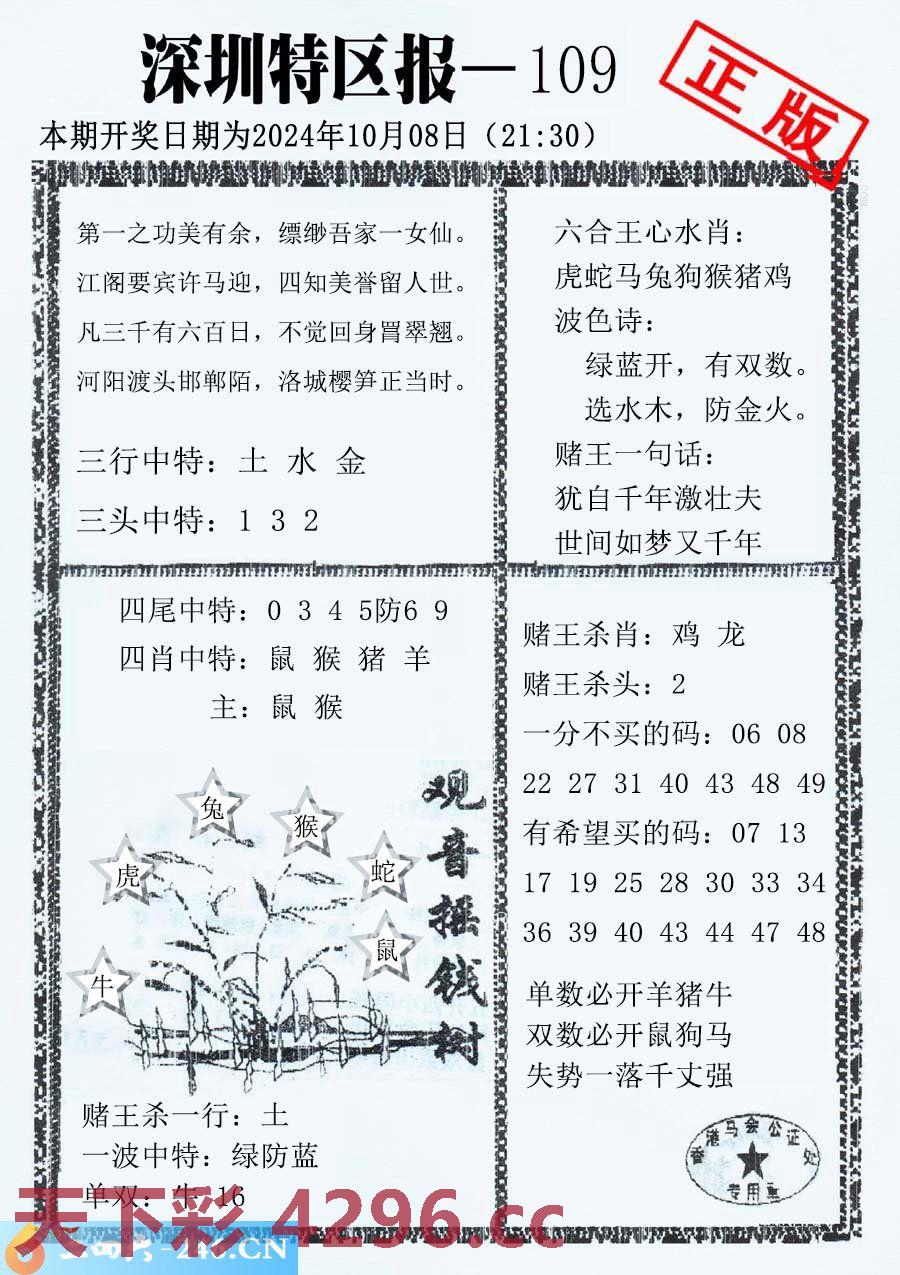 深圳特区报—109
正版
本期开奖日期为2024年10月08日（21:30）
第一之功美有余，缥缈吾家一女仙。
江阁要宾许马迎，四知美誉留人世。
凡三千有六百日，不觉回身罥翠翘。
河阳渡头邯郸陌，洛城樱笋正当时。
三行中特：土 水 金
三头中特：1 3 2
六合王心水肖：
虎蛇马兔狗猴猪鸡
波色诗：
绿蓝开，有双数。
选水木，防金火。
赌王一句话：
犹自千年激壮夫
世间如梦又千年
四尾中特：0 3 4 5防6 9
四肖中特：鼠 猴 猪 羊
主：鼠 猴
兔
猴
虎
蛇
鼠
牛
观音摇钱树
赌王杀一行：土
一波中特：绿防蓝
单双：牛 16
赌王杀肖：鸡 龙
赌王杀头：2
一分不买的码：06 08
22 27 31 40 43 48 49
有希望买的码：07 13
17 19 25 28 30 33 34
36 39 40 43 44 47 48
单数必开羊猪牛
双数必开鼠狗马
失势一落千丈强
香港马会公证处
专用章
天下彩 4296.cc
-246.CN